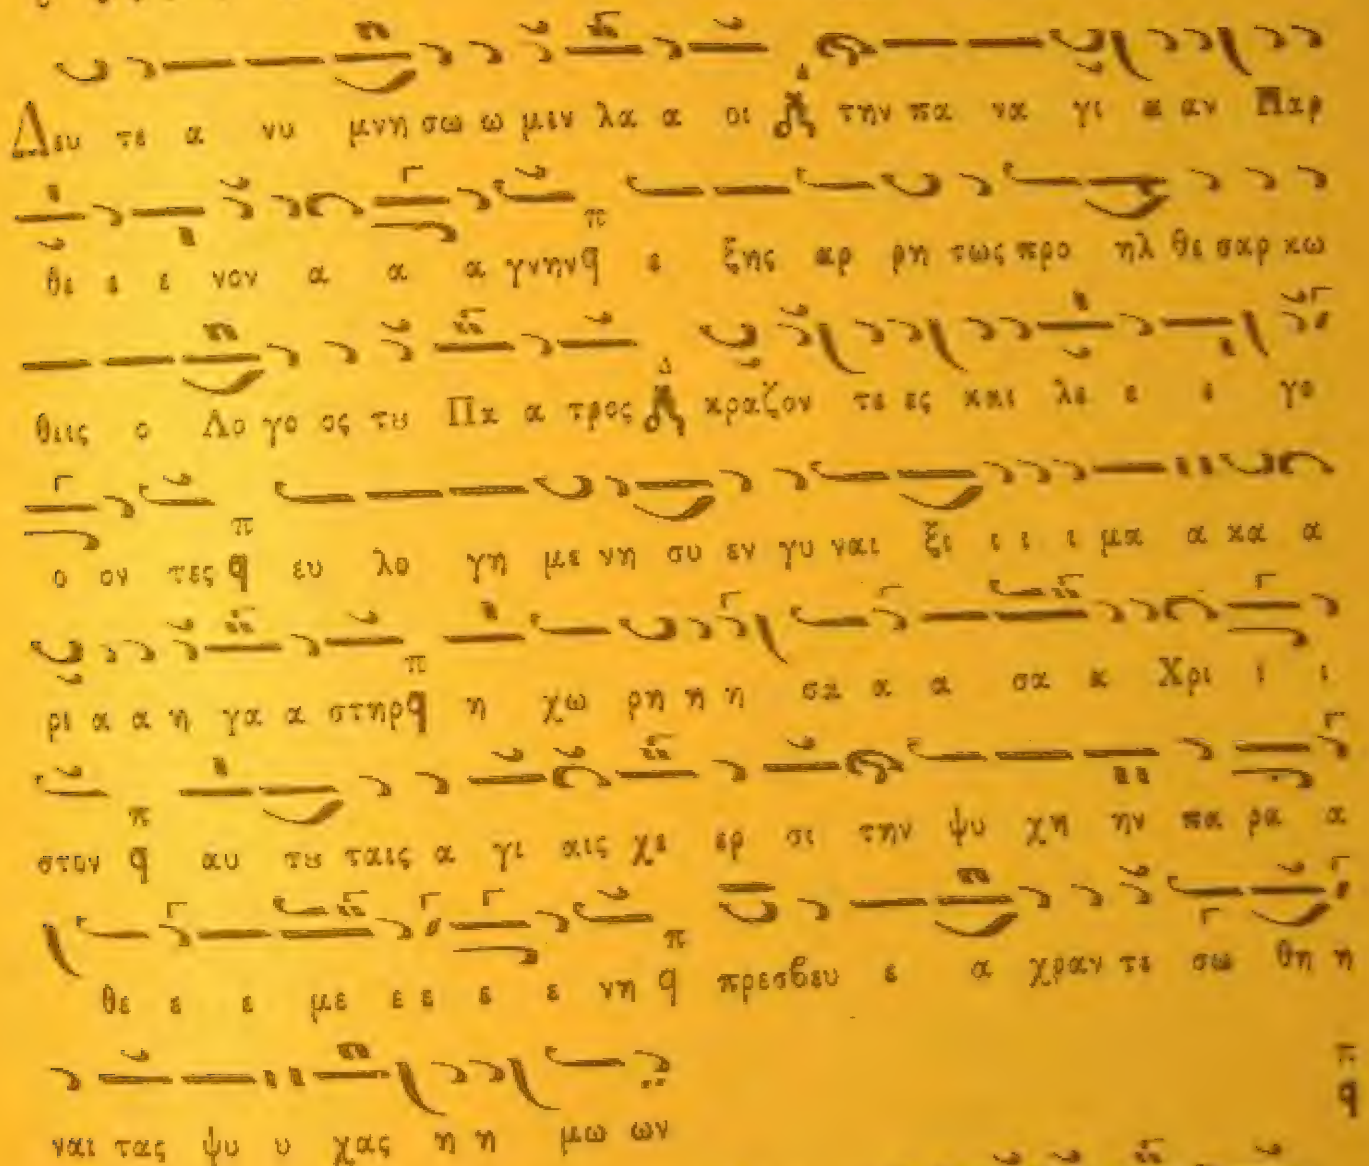 Δευ τε α νυ μνη σω ω μεν λα α οι την πα να γι α αν Παρ
θε ε ε νον α α α γνην ε ξης αρ ρη τως προ ηλ θε σαρ κω
θεις ο Λο γο ος τȣ Πα α τρος κραζον τε ες και λε ε ε γο
ο ον τες ευ λο γη με νη συ εν γυ ναι ξι ι ι ι μα α κα α
ρι α α η γα α στηρ η χω ρη η η σα α α σα α Χρι ι ι
στον αυ τȣ ταις α γι αις χε ερ σι την ψυ χη ην πα ρα α
θε ε ε με ε ε ε ε νη πρεσβευ ε α χραν τε σω θη η
ναι τας ψυ υ χας η η μω ων